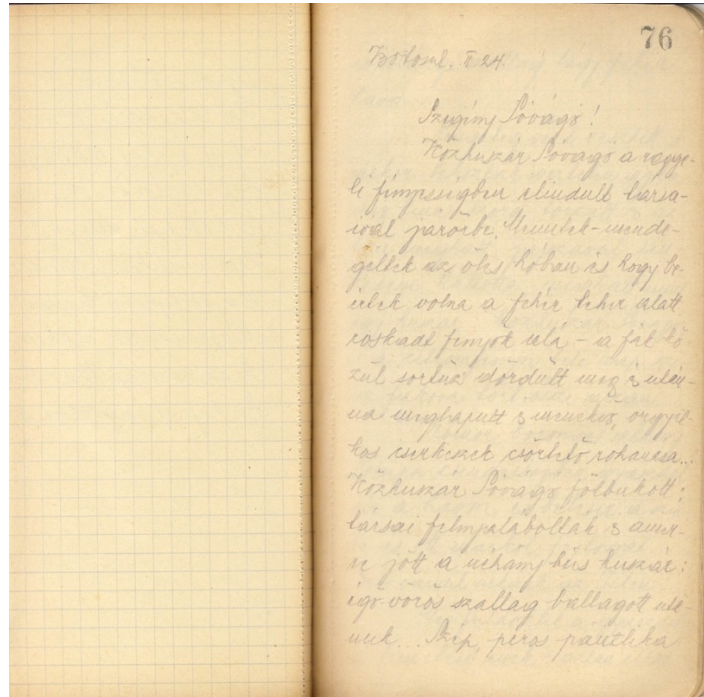 76
II. 24.
Szegény Sóvágó!
Közhuszár Sóvágó a regge-
li fényességben elindult társa-
ival járőrbe. Mentek-mende-
géltek az öles hóban és hogy be-
értek volna a fehér teher alatt
roskadó fenyők alá - a fák kö-
zül sortűz dördült meg s után-
na orgyil-
kos cserkeszek csörtető rohama...
Közhuszár Sóvágó fölbukott;
társai s amer-
re jött a néhány bús huszár:
égő vörös szallag ballagott utá-
nuk... Szép, piros pántlika